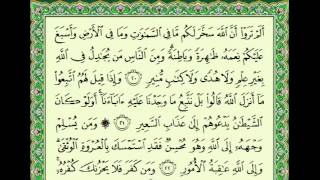 أَلَمْ تَرَوْا۟ أَنَّ ٱللَّهَ سَخَّرَ لَكُم مَّا فِى ٱلسَّمَٰوَٰتِ وَمَا فِى ٱلْأَرْضِ وَأَسْبَغَ
عَلَيْكُمْ نِعَمَهُۥ ظَٰهِرَةً وَبَاطِنَةً ۗ وَمِنَ ٱلنَّاسِ مَن يُجَٰدِلُ فِى ٱللَّهِ
بِغَيْرِ عِلْمٍ وَلَا هُدًى وَلَا كِتَٰبٍ مُّنِيرٍ ﴿٢٠﴾ وَإِذَا قِيلَ لَهُمُ ٱتَّبِعُوا۟
مَآ أَنزَلَ ٱللَّهُ قَالُوا۟ بَلْ نَتَّبِعُ مَا وَجَدْنَا عَلَيْهِ ءَابَآءَنَآ ۚ أَوَلَوْ كَانَ
ٱلشَّيْطَٰنُ يَدْعُوهُمْ إِلَىٰ عَذَابِ ٱلسَّعِيرِ ﴿٢١﴾ ۞ وَمَن يُسْلِمْ
وَجْهَهُۥٓ إِلَى ٱللَّهِ وَهُوَ مُحْسِنٌ فَقَدِ ٱسْتَمْسَكَ بِٱلْعُرْوَةِ ٱلْوُثْقَىٰ ۗ
وَإِلَى ٱللَّهِ عَٰقِبَةُ ٱلْأُمُورِ ﴿٢٢﴾ وَمَن كَفَرَ فَلَا يَحْزُنكَ كُفْرُهُۥٓ ۚ